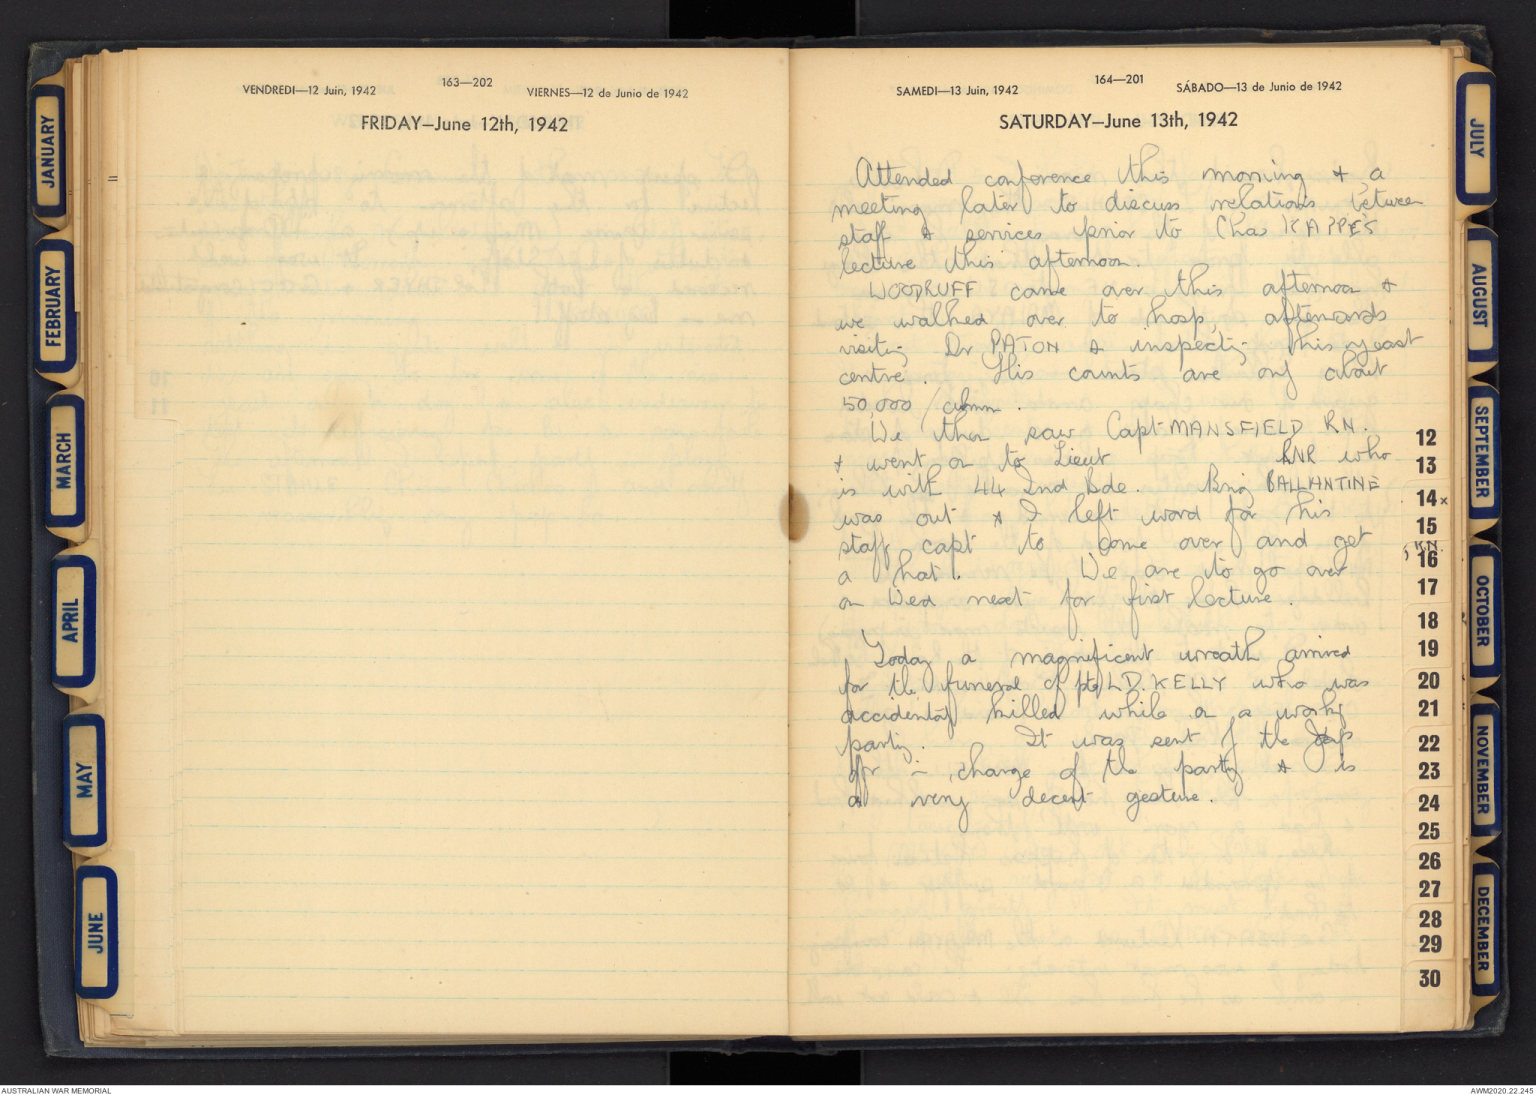 VENDREDI—12 Juin, 1942
163—202
VIERNES—12 de Junio de 1942
FRIDAY—June 12th, 1942
SAMEDI—13 Juin, 1942
164—201
SÁBADO—13 de Junio de 1942
SATURDAY—June 13th, 1942
Attended conference this morning & a
meeting later to discuss relations between
staff & services prior to Chas KAPPE'S
lecture this afternoon.
WOODRUFF came over this afternoon &
we walked over to hosp, afterwards
visiting Dr PATON & inspecting his yeast
centre. His counts are only about
50,000 / cubmm.
We then saw Capt MANSFIELD RN.
& went on to Lieut RNR who
is with 44 Ind Bde. Brig BALLANTINE
was out & I left word for his
staff capt to come over and get
a hat. We are to go over
on Wed next for first lecture.
Today a magnificent wreath arrived
for the funeral of pte L.D. KELLY who was
accidently killed while on a working
party. It was sent by the Jap
offr in charge of the party & is
a very decent gesture.
JANUARY
FEBRUARY
MARCH
APRIL
MAY
JUNE
JULY
AUGUST
SEPTEMBER
OCTOBER
NOVEMBER
DECEMBER
10
11
12
13
14x
15
, RN.
16
17
18
19
20
21
22
23
24
25
26
27
28
29
30
AUSTRALIAN WAR MEMORIAL
AWM2020.22.245